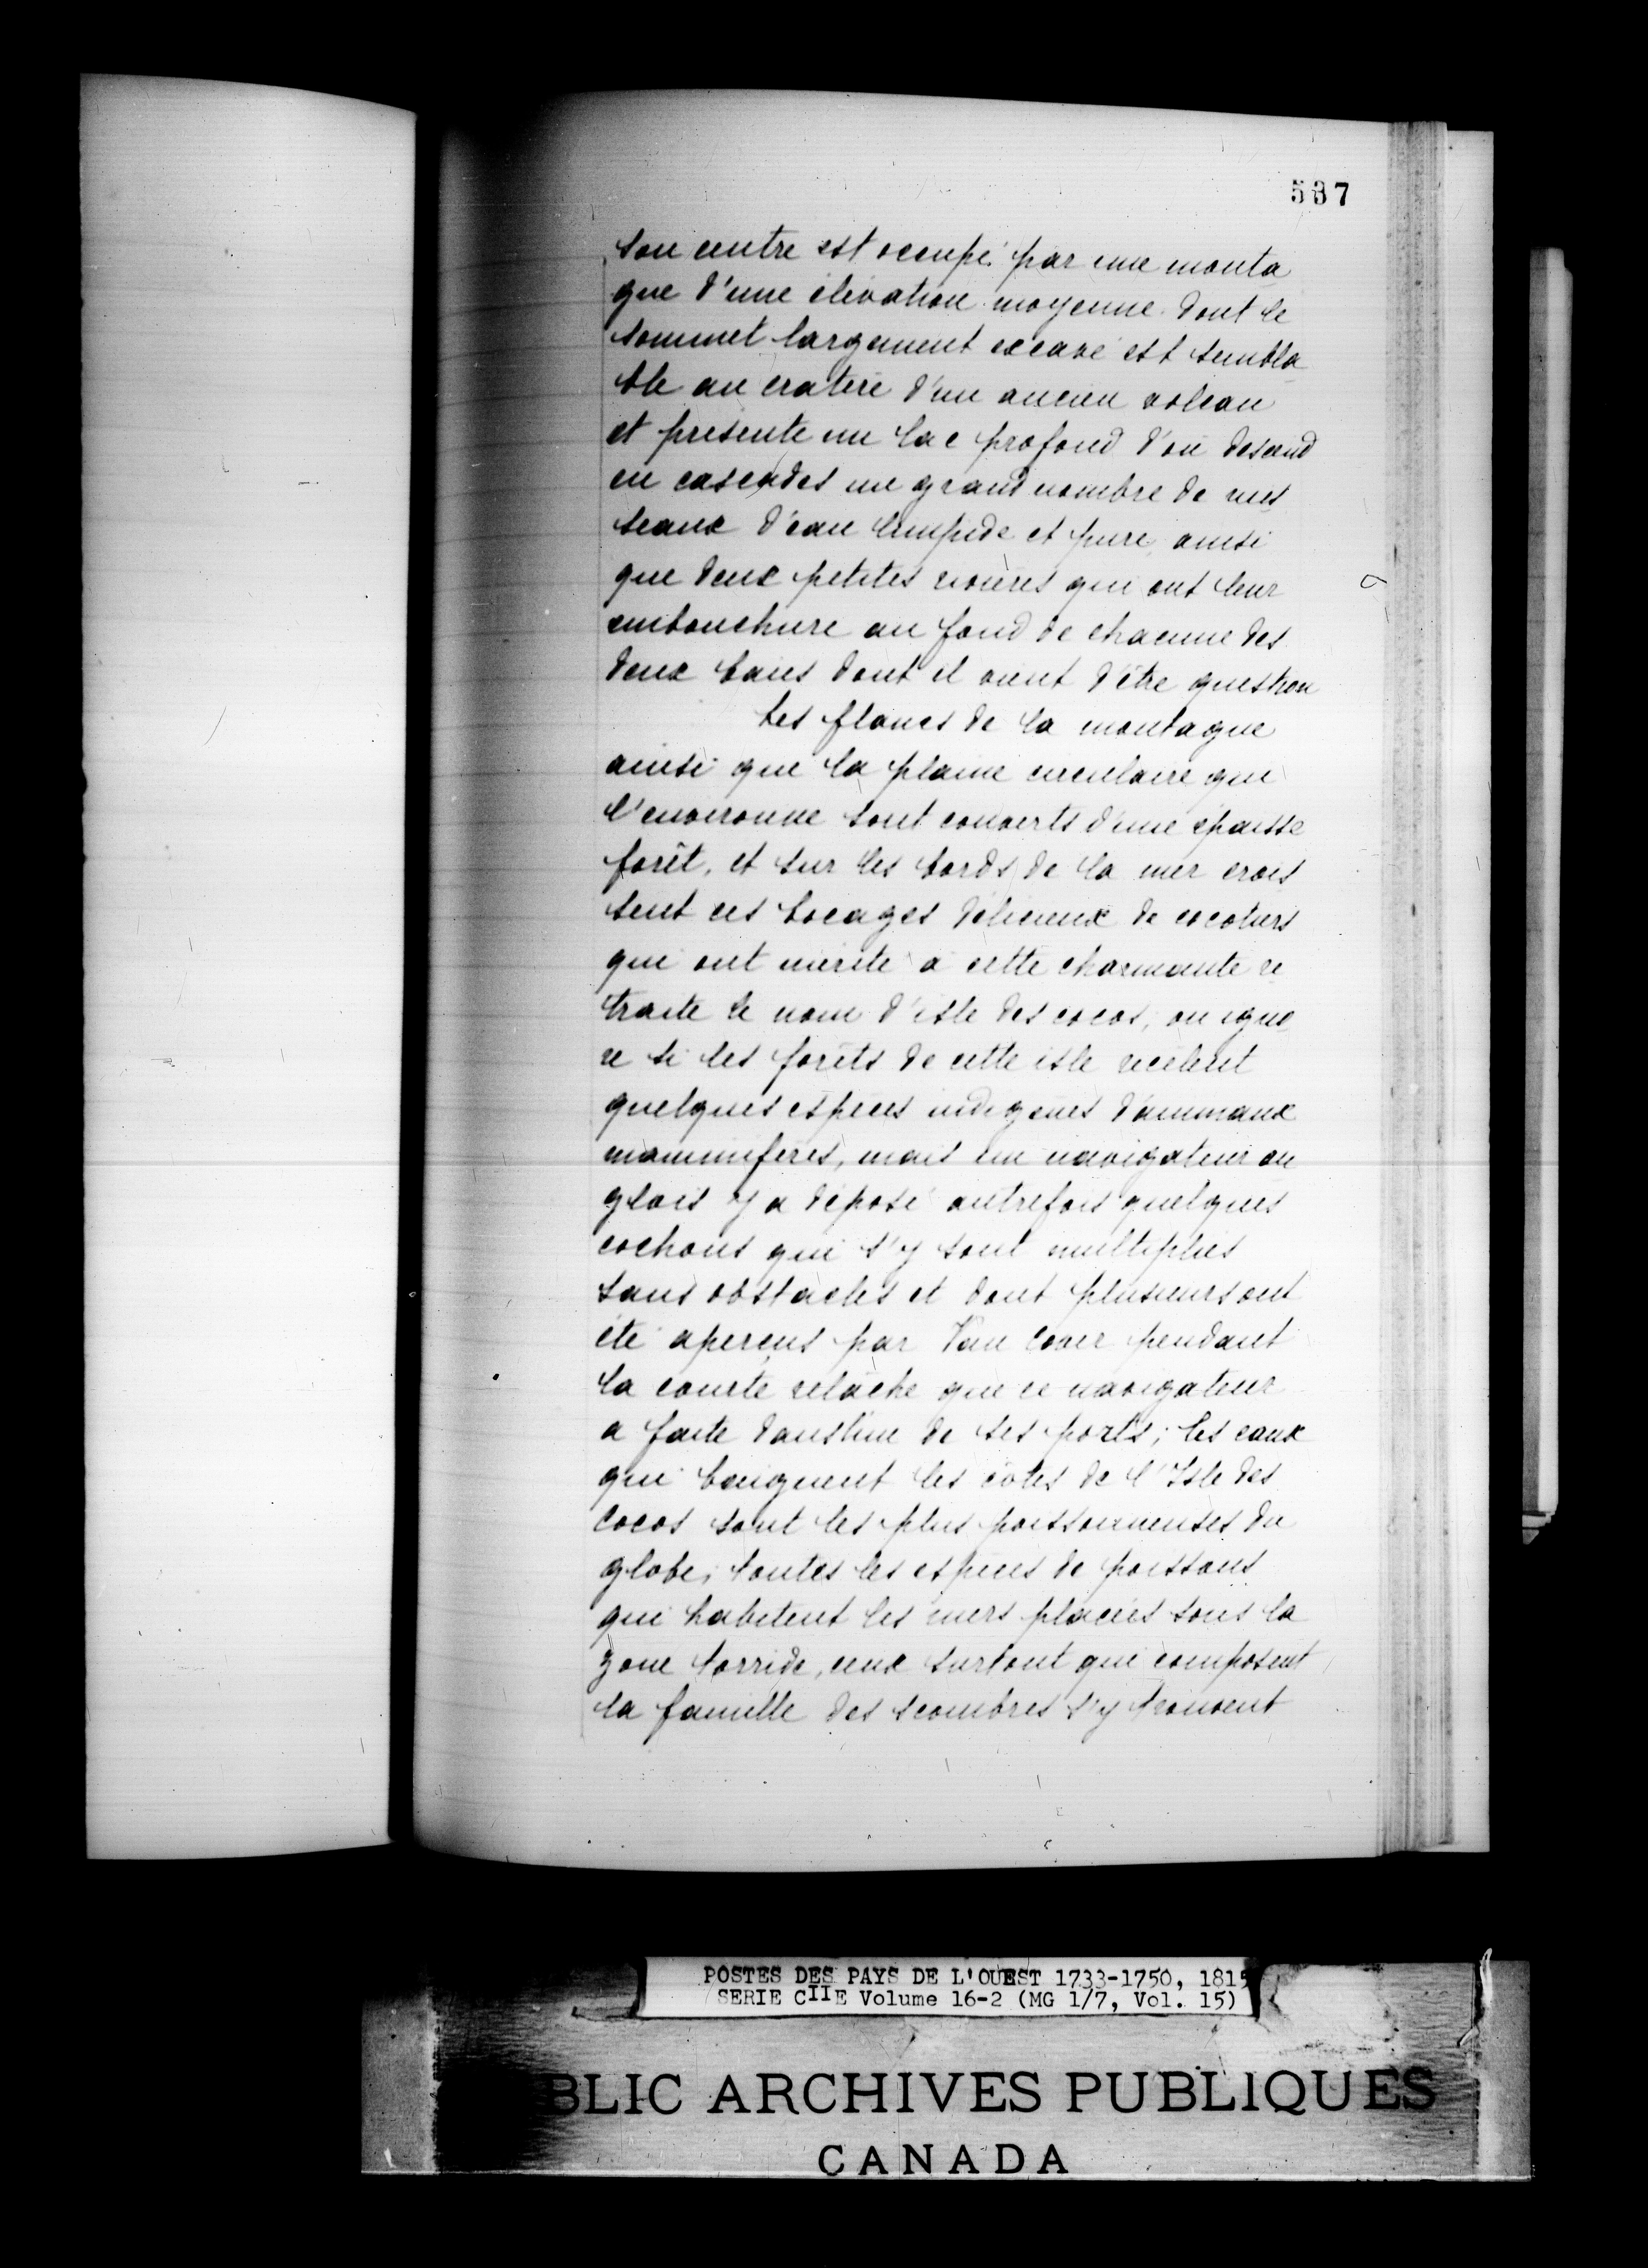 537
son centre est occupé par une monta
gne d'une élévation moyenne dont le
sommet largement excavé est sembla
ble au cratère d'un ancien volcan
et présente un lac profond d'où descend
en cascades un grand nombre de ruis
seaux d'eau limpide et pure, ainsi
que deux petites rivières qui ont leur
embouchure au fond de chacune des
deux baies dont il vient d'être question
Les flancs de la montagne
ainsi que la plaine circulaire qui
l'environne sont couverts d'une épaisse
forêt, et sur les bords de la mer crois
sent ces bocages délicieux de cocotiers
qui ont mérité à cette charmante re
traite le nom d'isle des cocos, on igno
re si les forêts de cette isle recèlent
quelques espèces indigènes d'animaux
mammifères, mais un navigateur an
glais y a déposé autrefois quelques
cochons qui s'y sont multipliés
sans obstacles et dont plusieurs ont
été aperçus par Van Cover pendant
la courte relâche que ce navigateur
a faite dans l'un de ses ports; les eaux
qui baignent les côtes de l'Isle des
Cocos sont les plus poissonneuses du
globe, toutes les espèces de poissons
qui habitent les mers placées sous la
zone torride, ceux surtout qui composent
la famille des scombres s'y trouvent
POSTES DES PAYS DE L'OUEST 1733-1750, 1815
SERIE CIIE Volume 16-2 (MG 1/7, Vol. 15)
BLIC ARCHIVES PUBLIQUES
CANADA